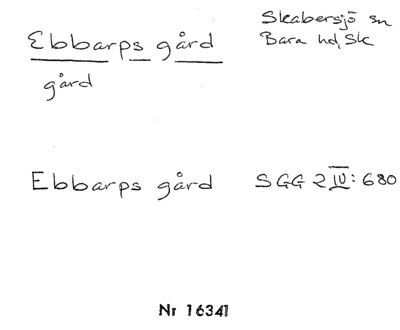 Ebbarps gård
Skabersjö sn
Bara hd, Sk
gård
Ebbarps gård SGG 2 IV: 680
Nr 16341